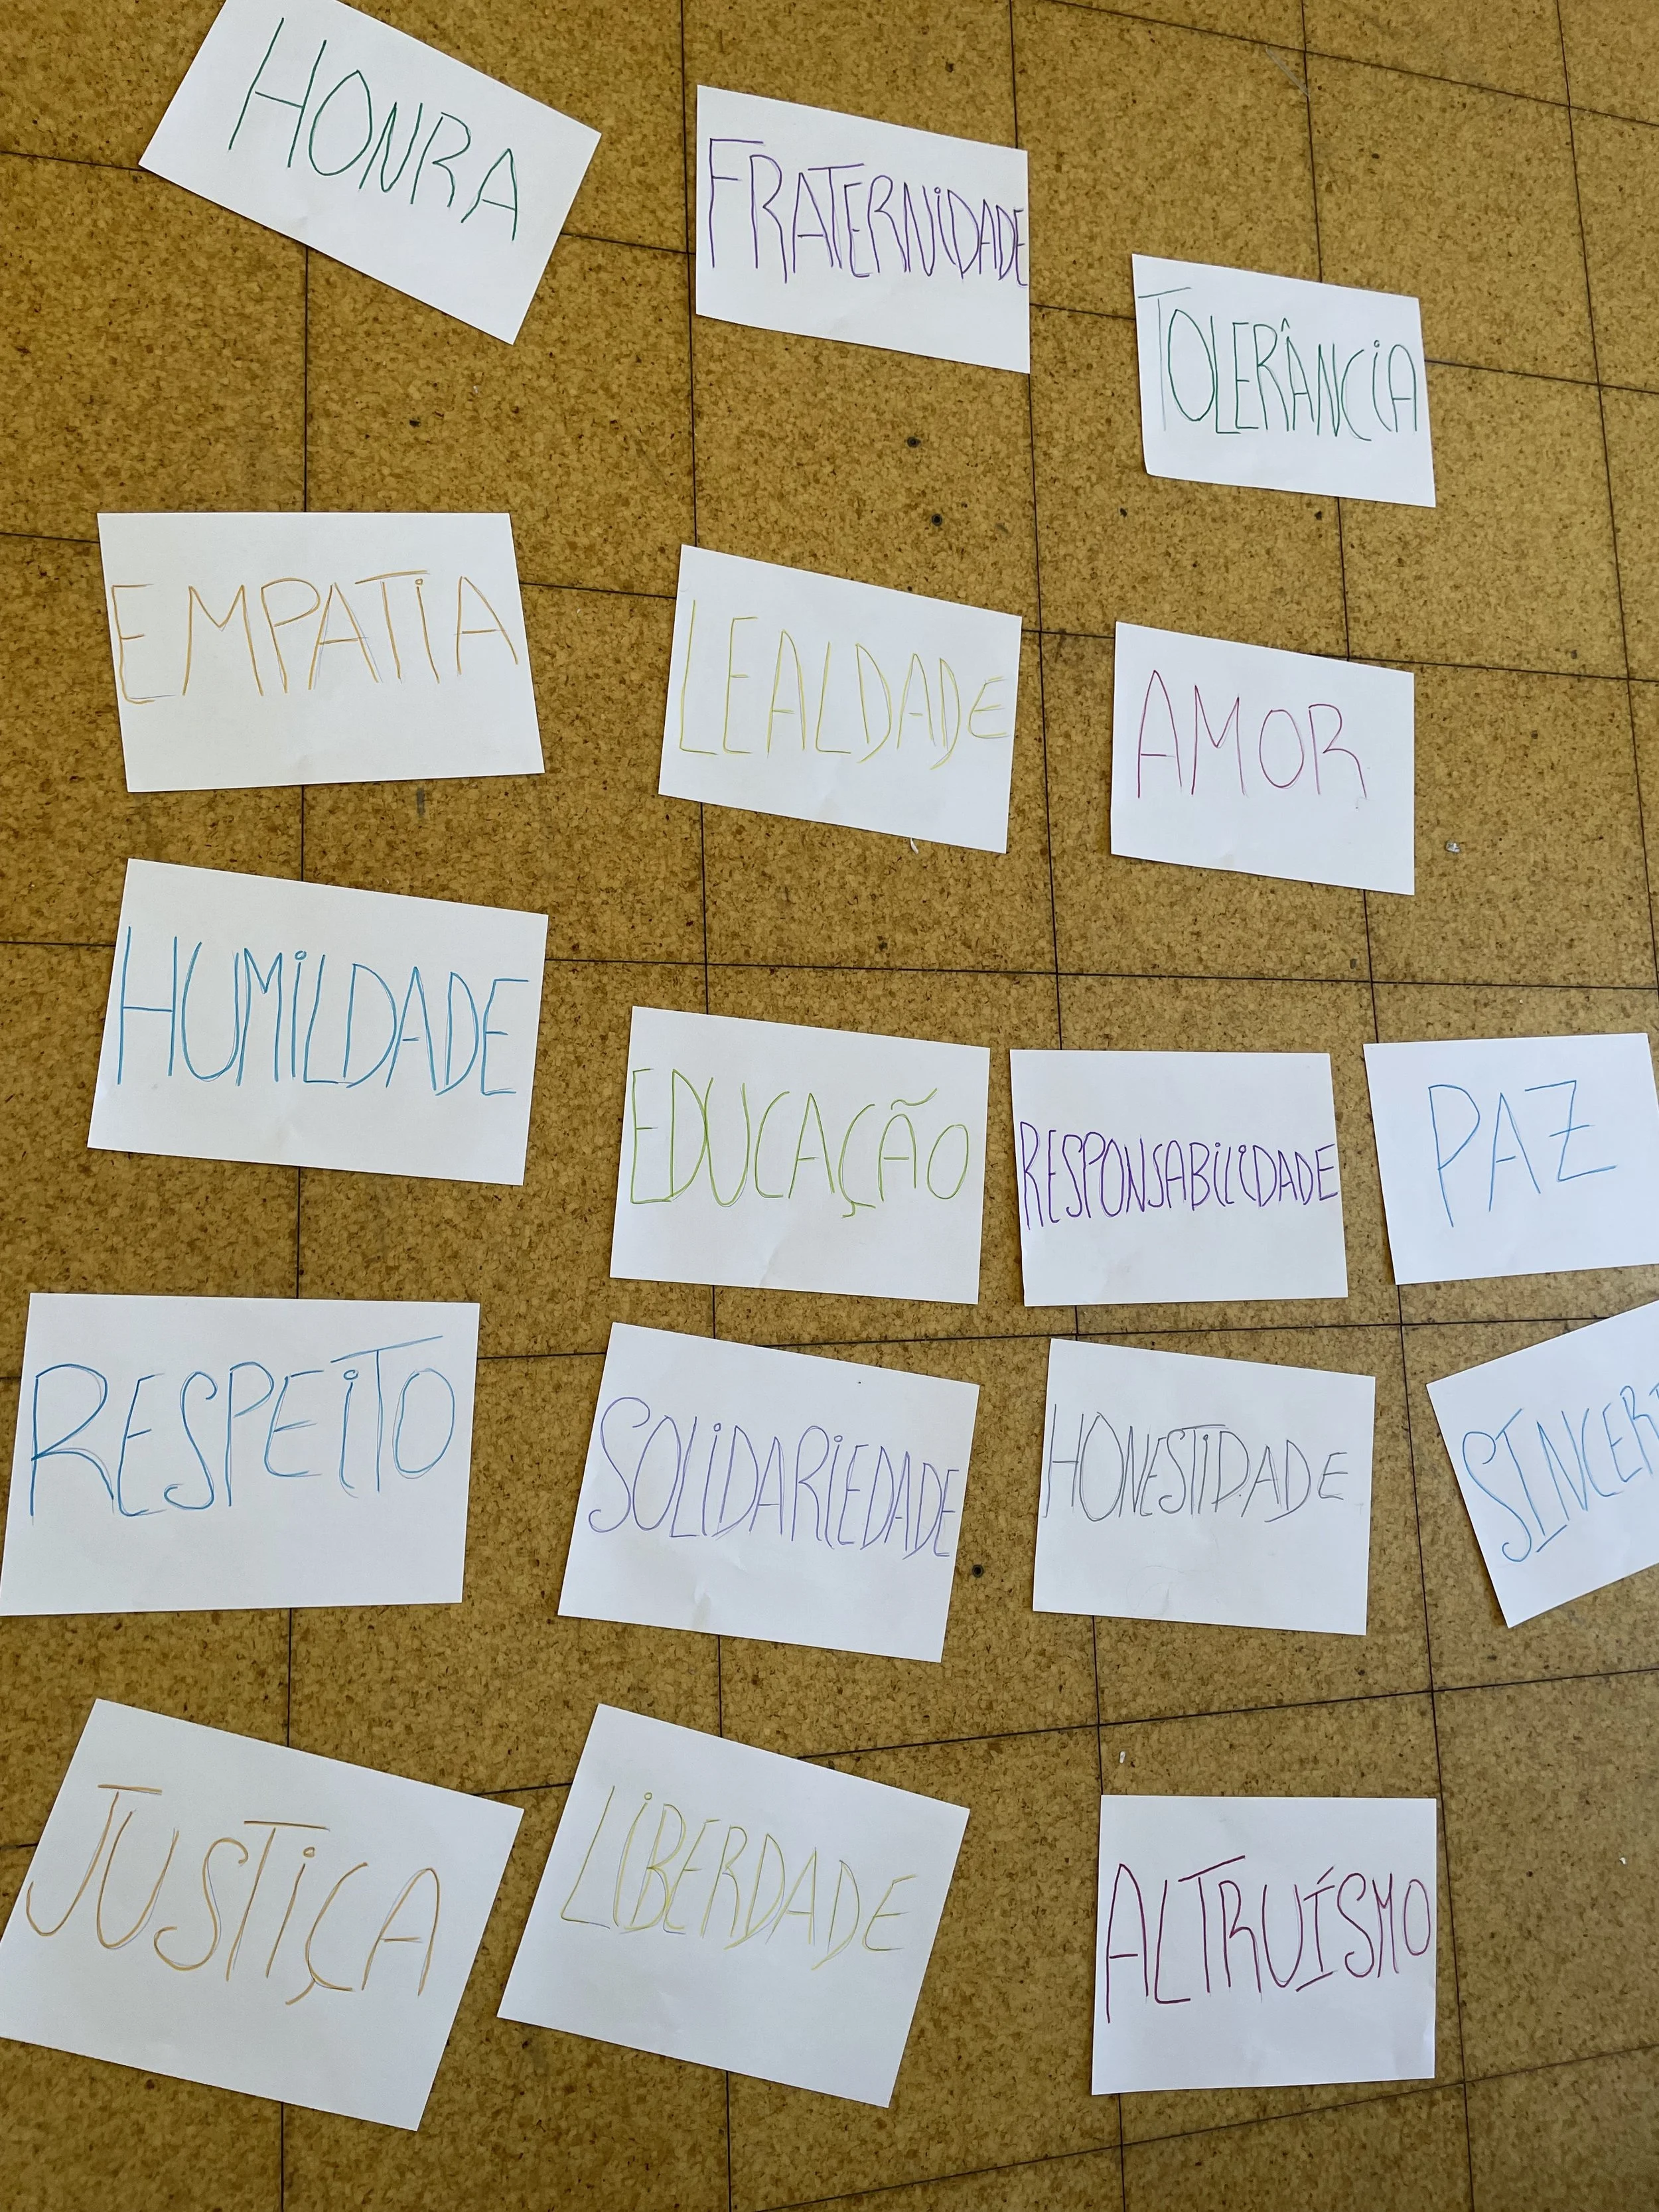 HONRA
FRATERNIDADE
TOLERÂNCIA
EMPATIA
LEALDADE
AMOR
HUMILDADE
EDUCAÇÃO
RESPONSABILIDADE
PAZ
RESPEITO
SOLIDARIEDADE
HONESTIDADE
JUSTIÇA
LIBERDADE
ALTRUÍSMO